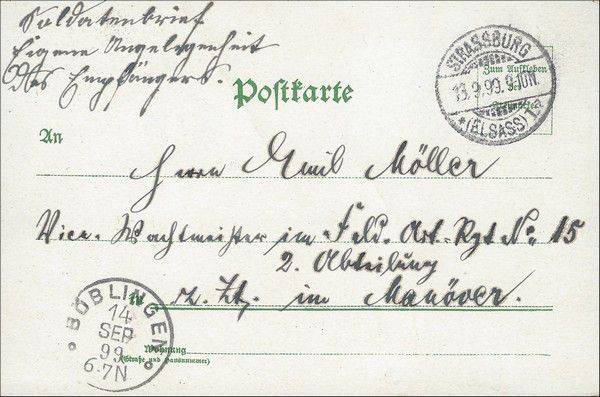 Soldatenbrief
Eigene Angelegenheit
des Empfängers.
Postkarte
STRASSBURG
Zum Aufkleben
13.9.99.9-10N.
* (ELSASS) 1.a
An
Herrn Emil Möller
Vice-Wachtmeister im Feld-Art-Rgt No 15
2. Abteilung
in z. Zt. im Manöver.
BÖBLINGEN
14
SEP
99
6-7N.
Wohnung
(Straße und Hausnummer)